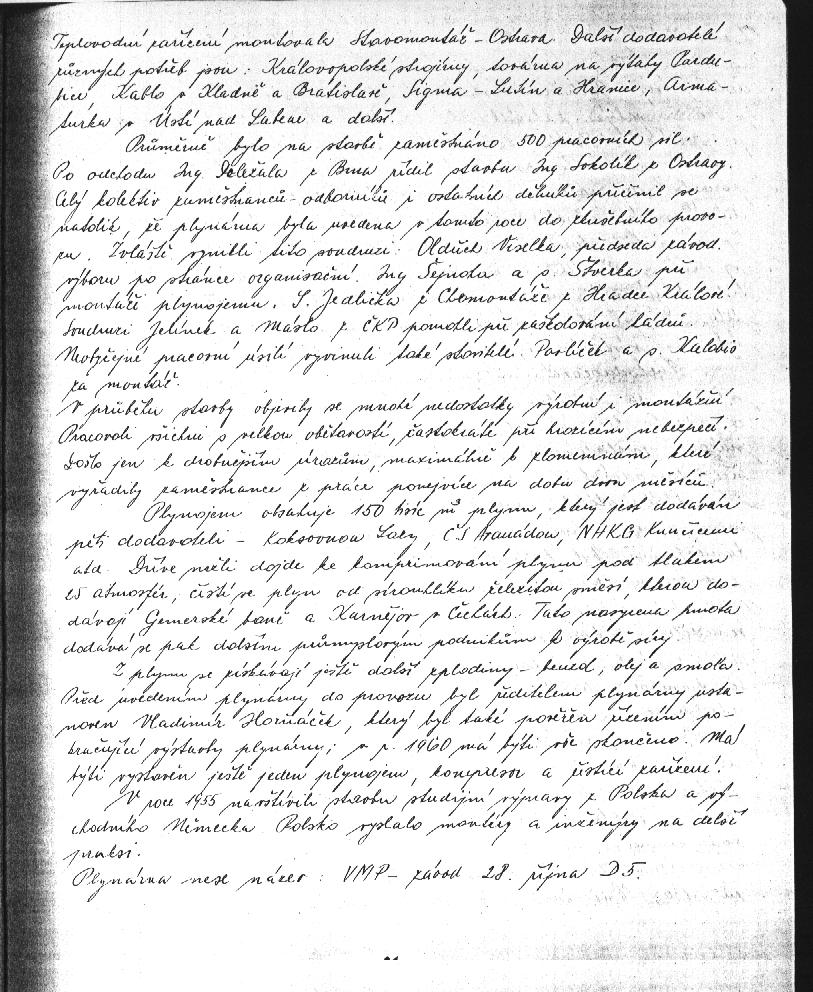 Teplovodní zařízení montovala Stavomontáž – Ostrava. Další dodavatelé
různých potřeb jsou: Královopolské strojírny, továrna na výtahy Pardu-
bice, Kablo v Kladně a Bratislavě, Sigma – Lutín a Hranice, Arma-
turka v Ústí nad Labem a další.
Průměrně bylo na stavbě zaměstnáno 500 pracovních sil.
Po odchodu Ing. Doležala z Brna řídil stavbu Ing Sokolík z Ostravy.
Celý kolektiv zaměstnanců-odborníků i ostatních dělníků přičinil se
natolik, že plynárna byla uvedena v tomto roce do zkušebního provo-
zu. Zvláště vynikli tito soudruzi: Oldřich Veselka, předseda závod.
výboru po stránce organisační. Ing Šejnoha a s. Štverka při
montáži plynojemu. S. Jedlička z Chemontáže z Hradce Králové
Soudruzi Jelínek a Máslo z ČKD pomohli při zaškolování kádrů.
Neobyčejné pracovní úsilí vyvinuli také stavitelé Pavlíček a s. Kalabis
za montáž.
V průběhu stavby objevily se mnohé nedostatky výrobní i montážní
Pracovali všichni s velkou obětavostí, častokráte při hrozícím nebezpečí.
Došlo jen k drobnějším úrazům, maximálně k zlomeninám, které
vyřadily zaměstnance z práce ponejvíce na dobu dvou měsíců.
Plynojem obsahuje 150 tisíc m³ plynu, který jest dodáván
pěti dodavateli – Koksovnou Lazy, ČS Armádou, NHKG Kunčicemi
atd. Dříve nežli dojde ke komprimování plynu pod tlakem
25 atmosfér, čistí se plyn od sirouhlíku železitou směsí, kterou do-
dávají Gemerské baně a Karnějov v Čechách. Tato nasycena hmota
dodává se pak dalším průmyslovým podnikům k výrobě síry
Z plynu se získávají ještě další zplodiny – benzol, olej a smola.
Před uvedením plynárny do provozu byl ředitelem plynárny usta-
noven Vladimír Horňáček, který byl také pověřen řízením po-
kračující výstavby plynárny; v r. 1960 má býti vše skončeno. Má
býti vystavěn ještě jeden plynojem, kompresor a čistící zařízení.
V roce 1955 navštívili stavbu studijní výpravy z Polska a vý-
chodního Německa. Polsko vyslalo montéry a inženýry na delší
praksi.
Plynárna nese název: VMP – závod 28. října D.5.